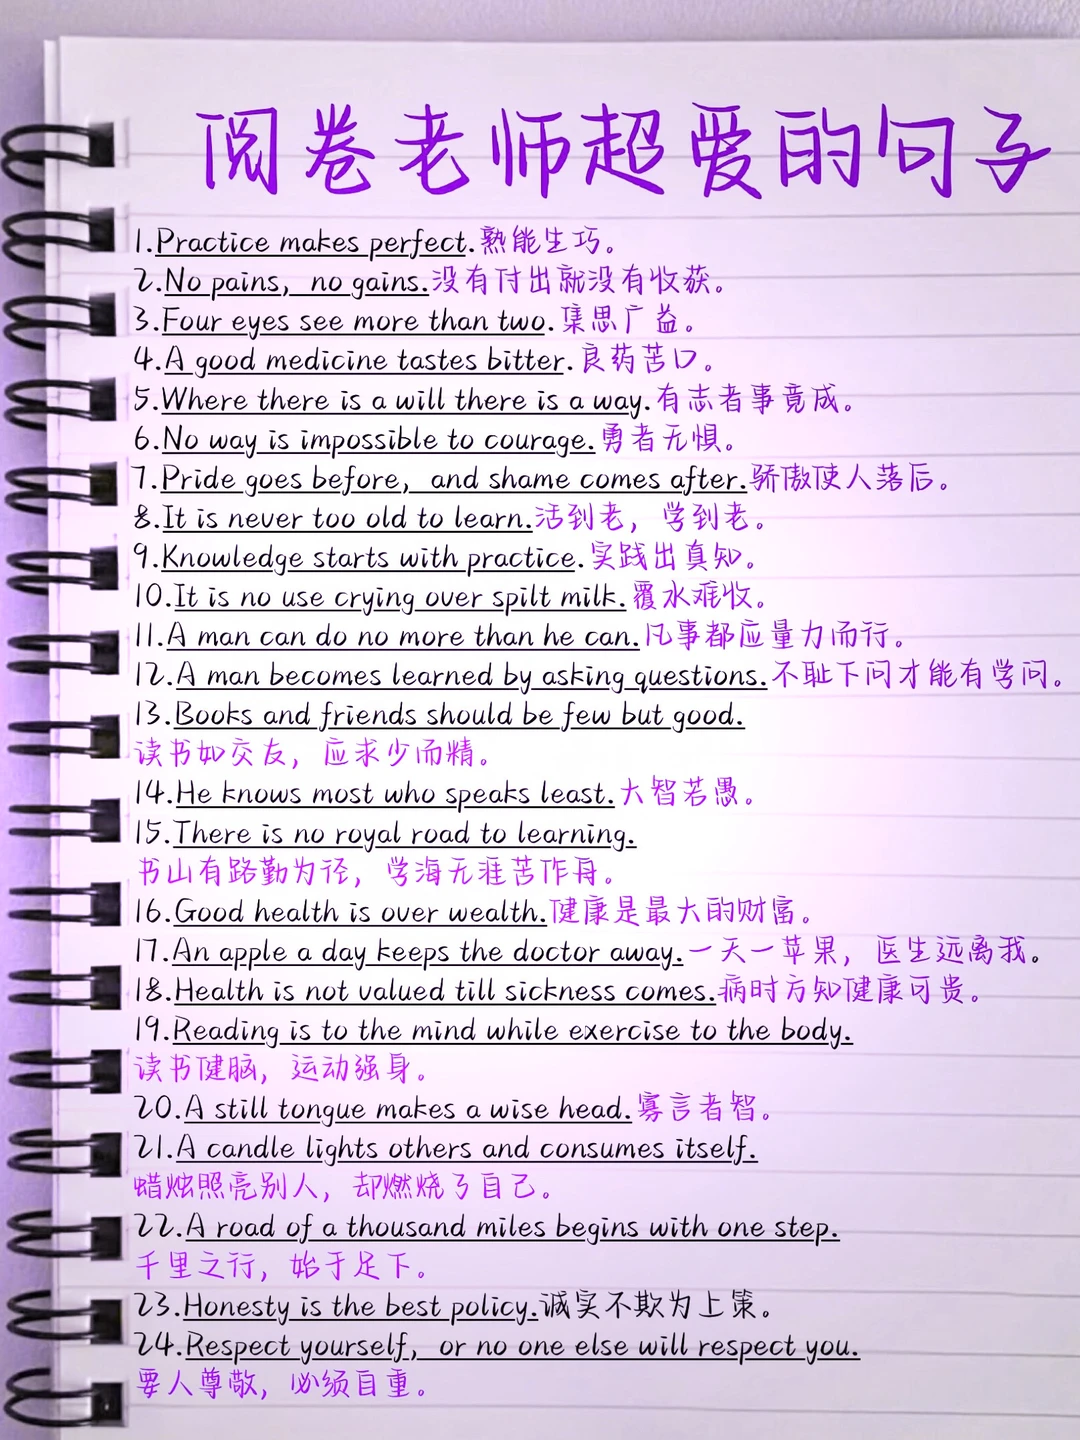 阅卷老师超爱的句子
1.Practice makes perfect.熟能生巧。
2.No pains, no gains.没有付出就没有收获。
3.Four eyes see more than two.集思广益。
4.A good medicine tastes bitter.良药苦口。
5.Where there is a will there is a way.有志者事竟成。
6.No way is impossible to courage.勇者无惧。
7.Pride goes before, and shame comes after.骄傲使人落后。
8.It is never too old to learn.活到老，学到老。
9.Knowledge starts with practice.实践出真知。
10.It is no use crying over spilt milk.覆水难收。
11.A man can do no more than he can.凡事都应量力而行。
12.A man becomes learned by asking questions.不耻下问才能有学问。
13.Books and friends should be few but good.
读书如交友，应求少而精。
14.He knows most who speaks least.大智若愚。
15.There is no royal road to learning.
书山有路勤为径，学海无涯苦作舟。
16.Good health is over wealth.健康是最大的财富。
17.An apple a day keeps the doctor away.一天一苹果，医生远离我。
18.Health is not valued till sickness comes.病时方知健康可贵。
19.Reading is to the mind while exercise to the body.
读书健脑，运动强身。
20.A still tongue makes a wise head.寡言者智。
21.A candle lights others and consumes itself.
蜡烛照亮别人，却燃烧了自己。
22.A road of a thousand miles begins with one step.
千里之行，始于足下。
23.Honesty is the best policy.诚实不欺为上策。
24.Respect yourself, or no one else will respect you.
要人尊敬，必须自重。